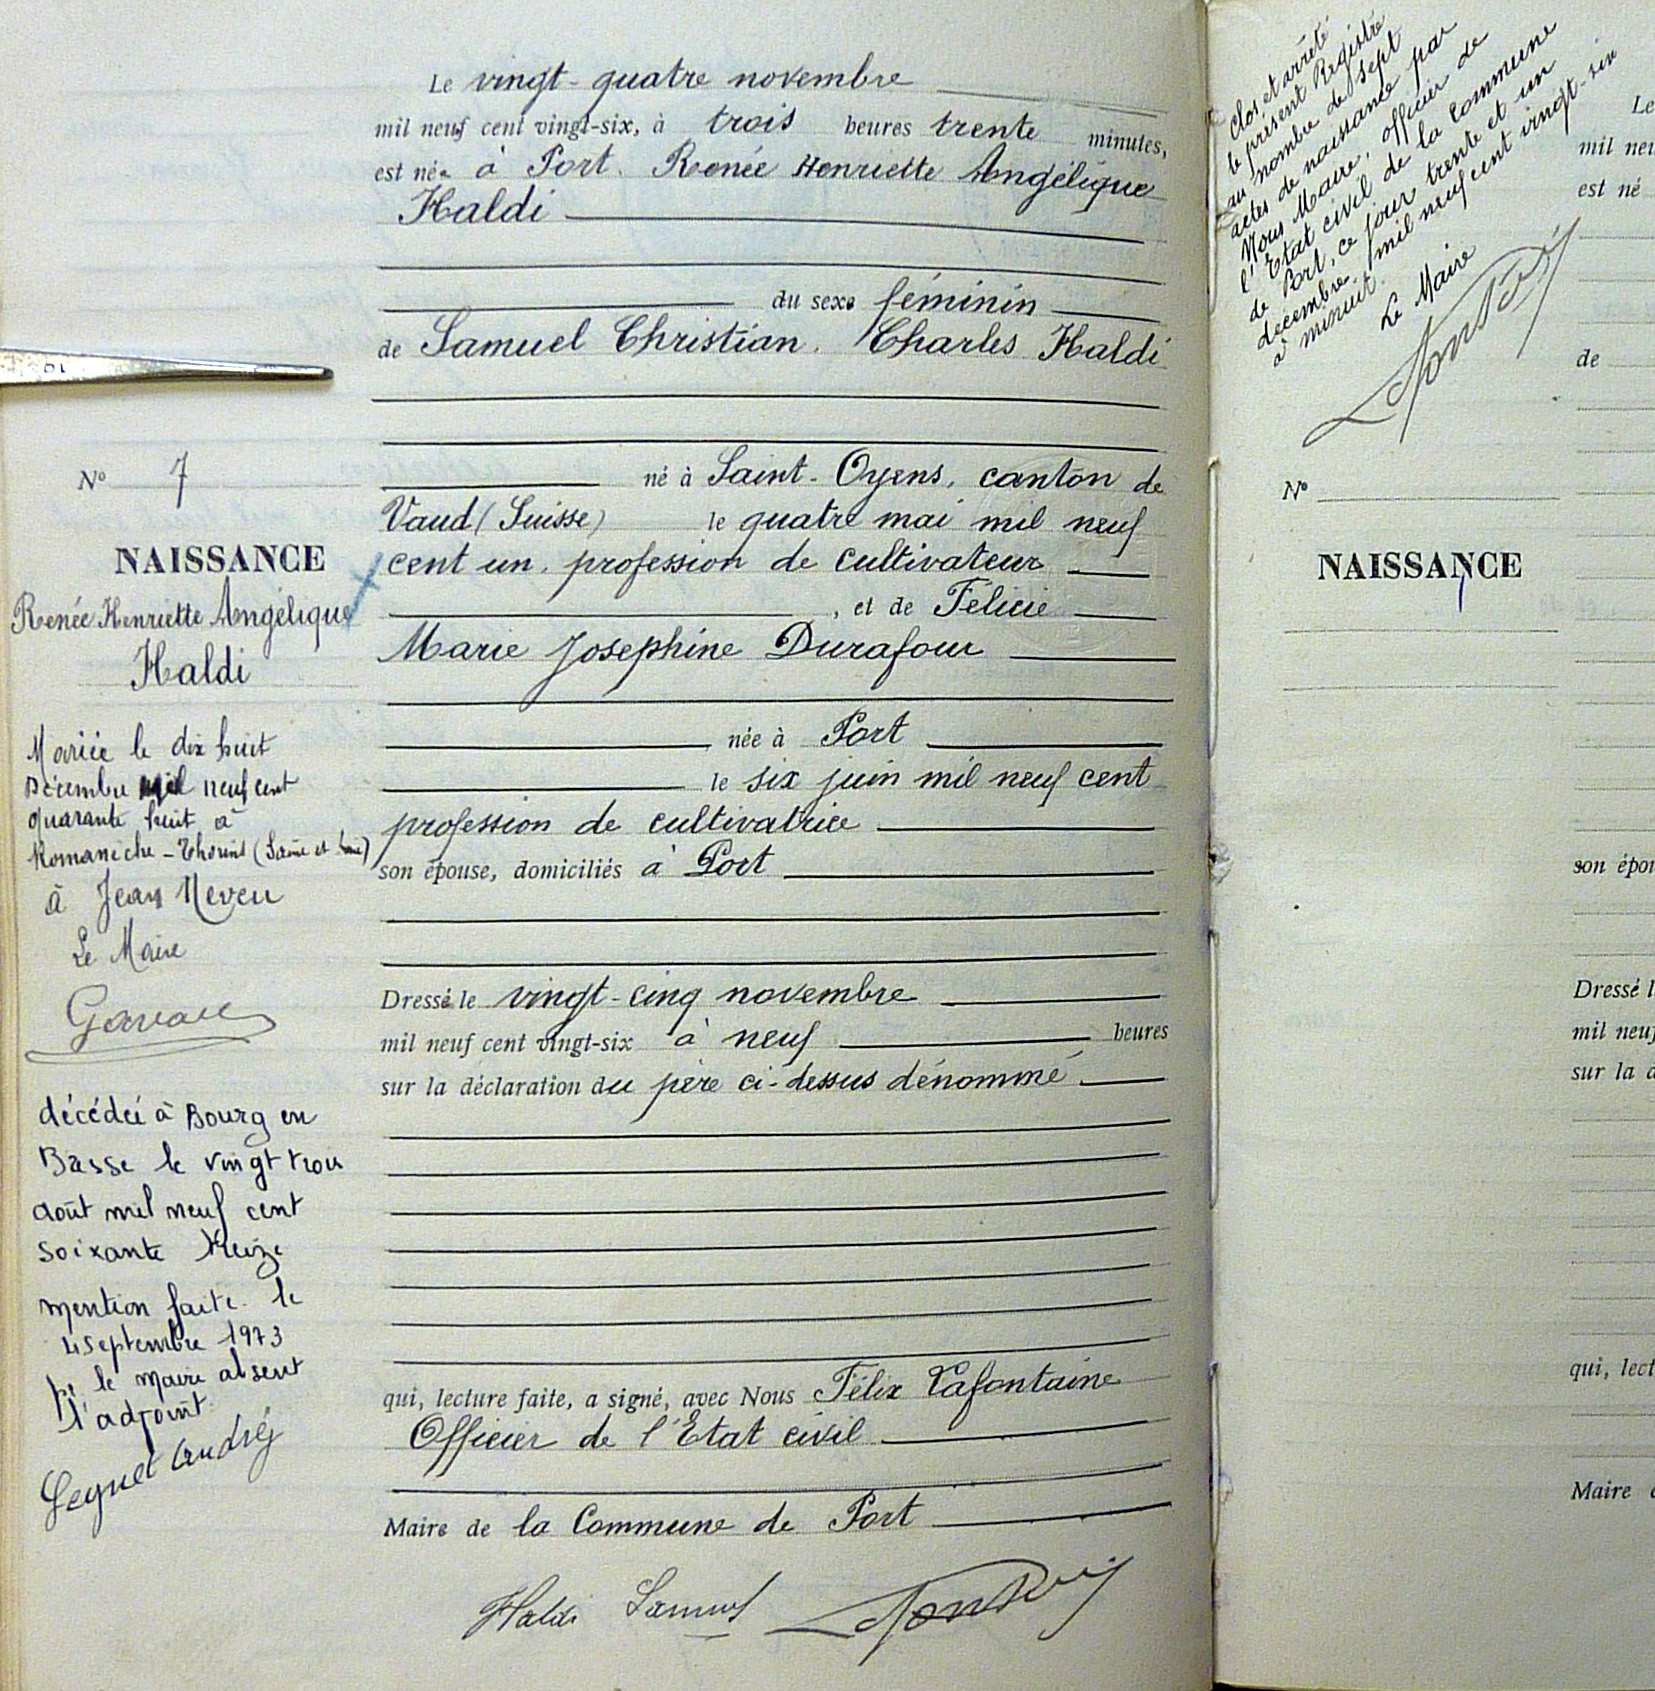 Le vingt-quatre novembre
mil neuf cent vingt-six, à trois heures trente minutes,
est née à Port. Renée Henriette Angélique
Haldi
du sexe féminin
de Samuel Christian. Charles Haldi
né à Saint-Oyens, canton de
Vaud (Suisse) le quatre mai mil neuf
cent un, profession de cultivateur
, et de Félicie
Marie Josephine Durafour
née à Port
le six juin mil neuf cent
profession de cultivatrice
son épouse, domiciliés à Port
Dressé le vingt-cinq novembre
mil neuf cent vingt-six à neuf heures
sur la déclaration du père ci-dessus dénommé
qui, lecture faite, a signé, avec Nous Félix Lafontaine
Officier de l'Etat civil
Maire de la Commune de Port
Haldi Samuel
No 7
NAISSANCE
Renée Henriette Angélique
Haldi
Mariée le dix huit
Décembre mil neuf cent
quarante huit à
Romanèche-Thorins (Saône et Loire)
à Jean Neveu
Le Maire
décédée à Bourg en
Bresse le vingt trois
août mil neuf cent
soixante treize
mention faite le
4 septembre 1973
pr le maire absent
l'adjoint
André
Clos et arrêté
le présent Registre
au nombre de sept
actes de naissance par
Nous Maire, officier de
l'Etat civil de la Commune
de Port, ce jour trente et un
décembre mil neuf cent vingt-six
à minuit.
Le Maire
No
NAISSANCE
Le
mil neu
est né
de
son épou
Dressé l
mil neuf
sur la d
qui, lect
Maire d
10